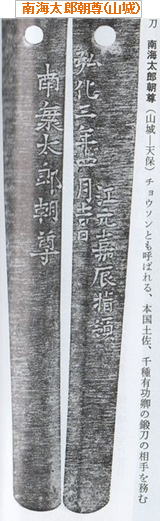 南海太郎朝尊(山城)
刀 南海太郎朝尊(山城―天保)チョウソンとも呼ばれる、本国土佐、千種有功卿の鍛刀の相手を務む
江元嘉辰指領
弘化三年四月吉日
南海太郎朝尊